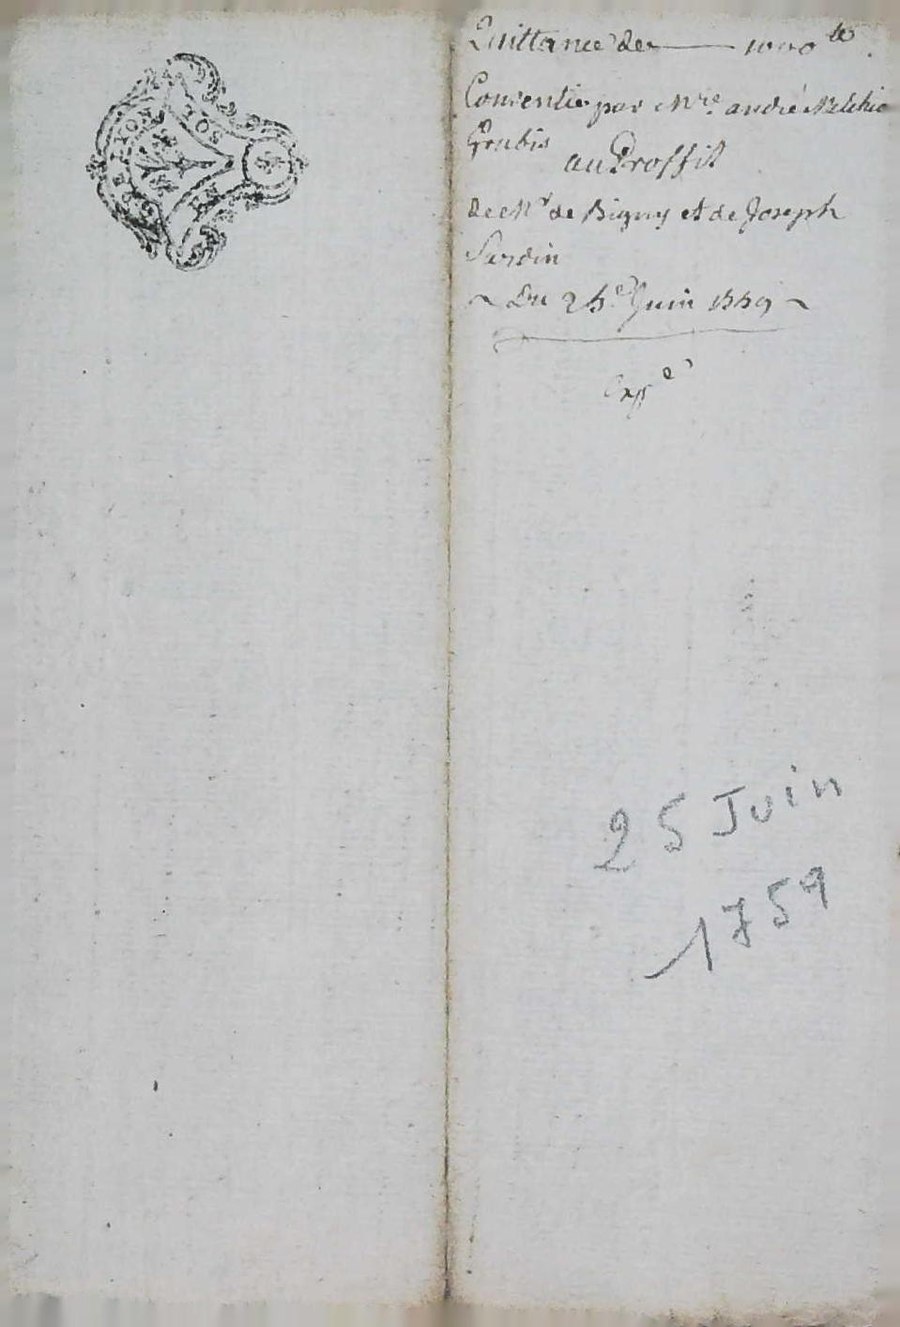 Quittance de 1000 ₶
Consentie par Mre. andré Melchio
au Proffit
de Mr de Bigny et de Joseph
Sardin
Du 25e Juin 1759
Expée
25 Juin
1759